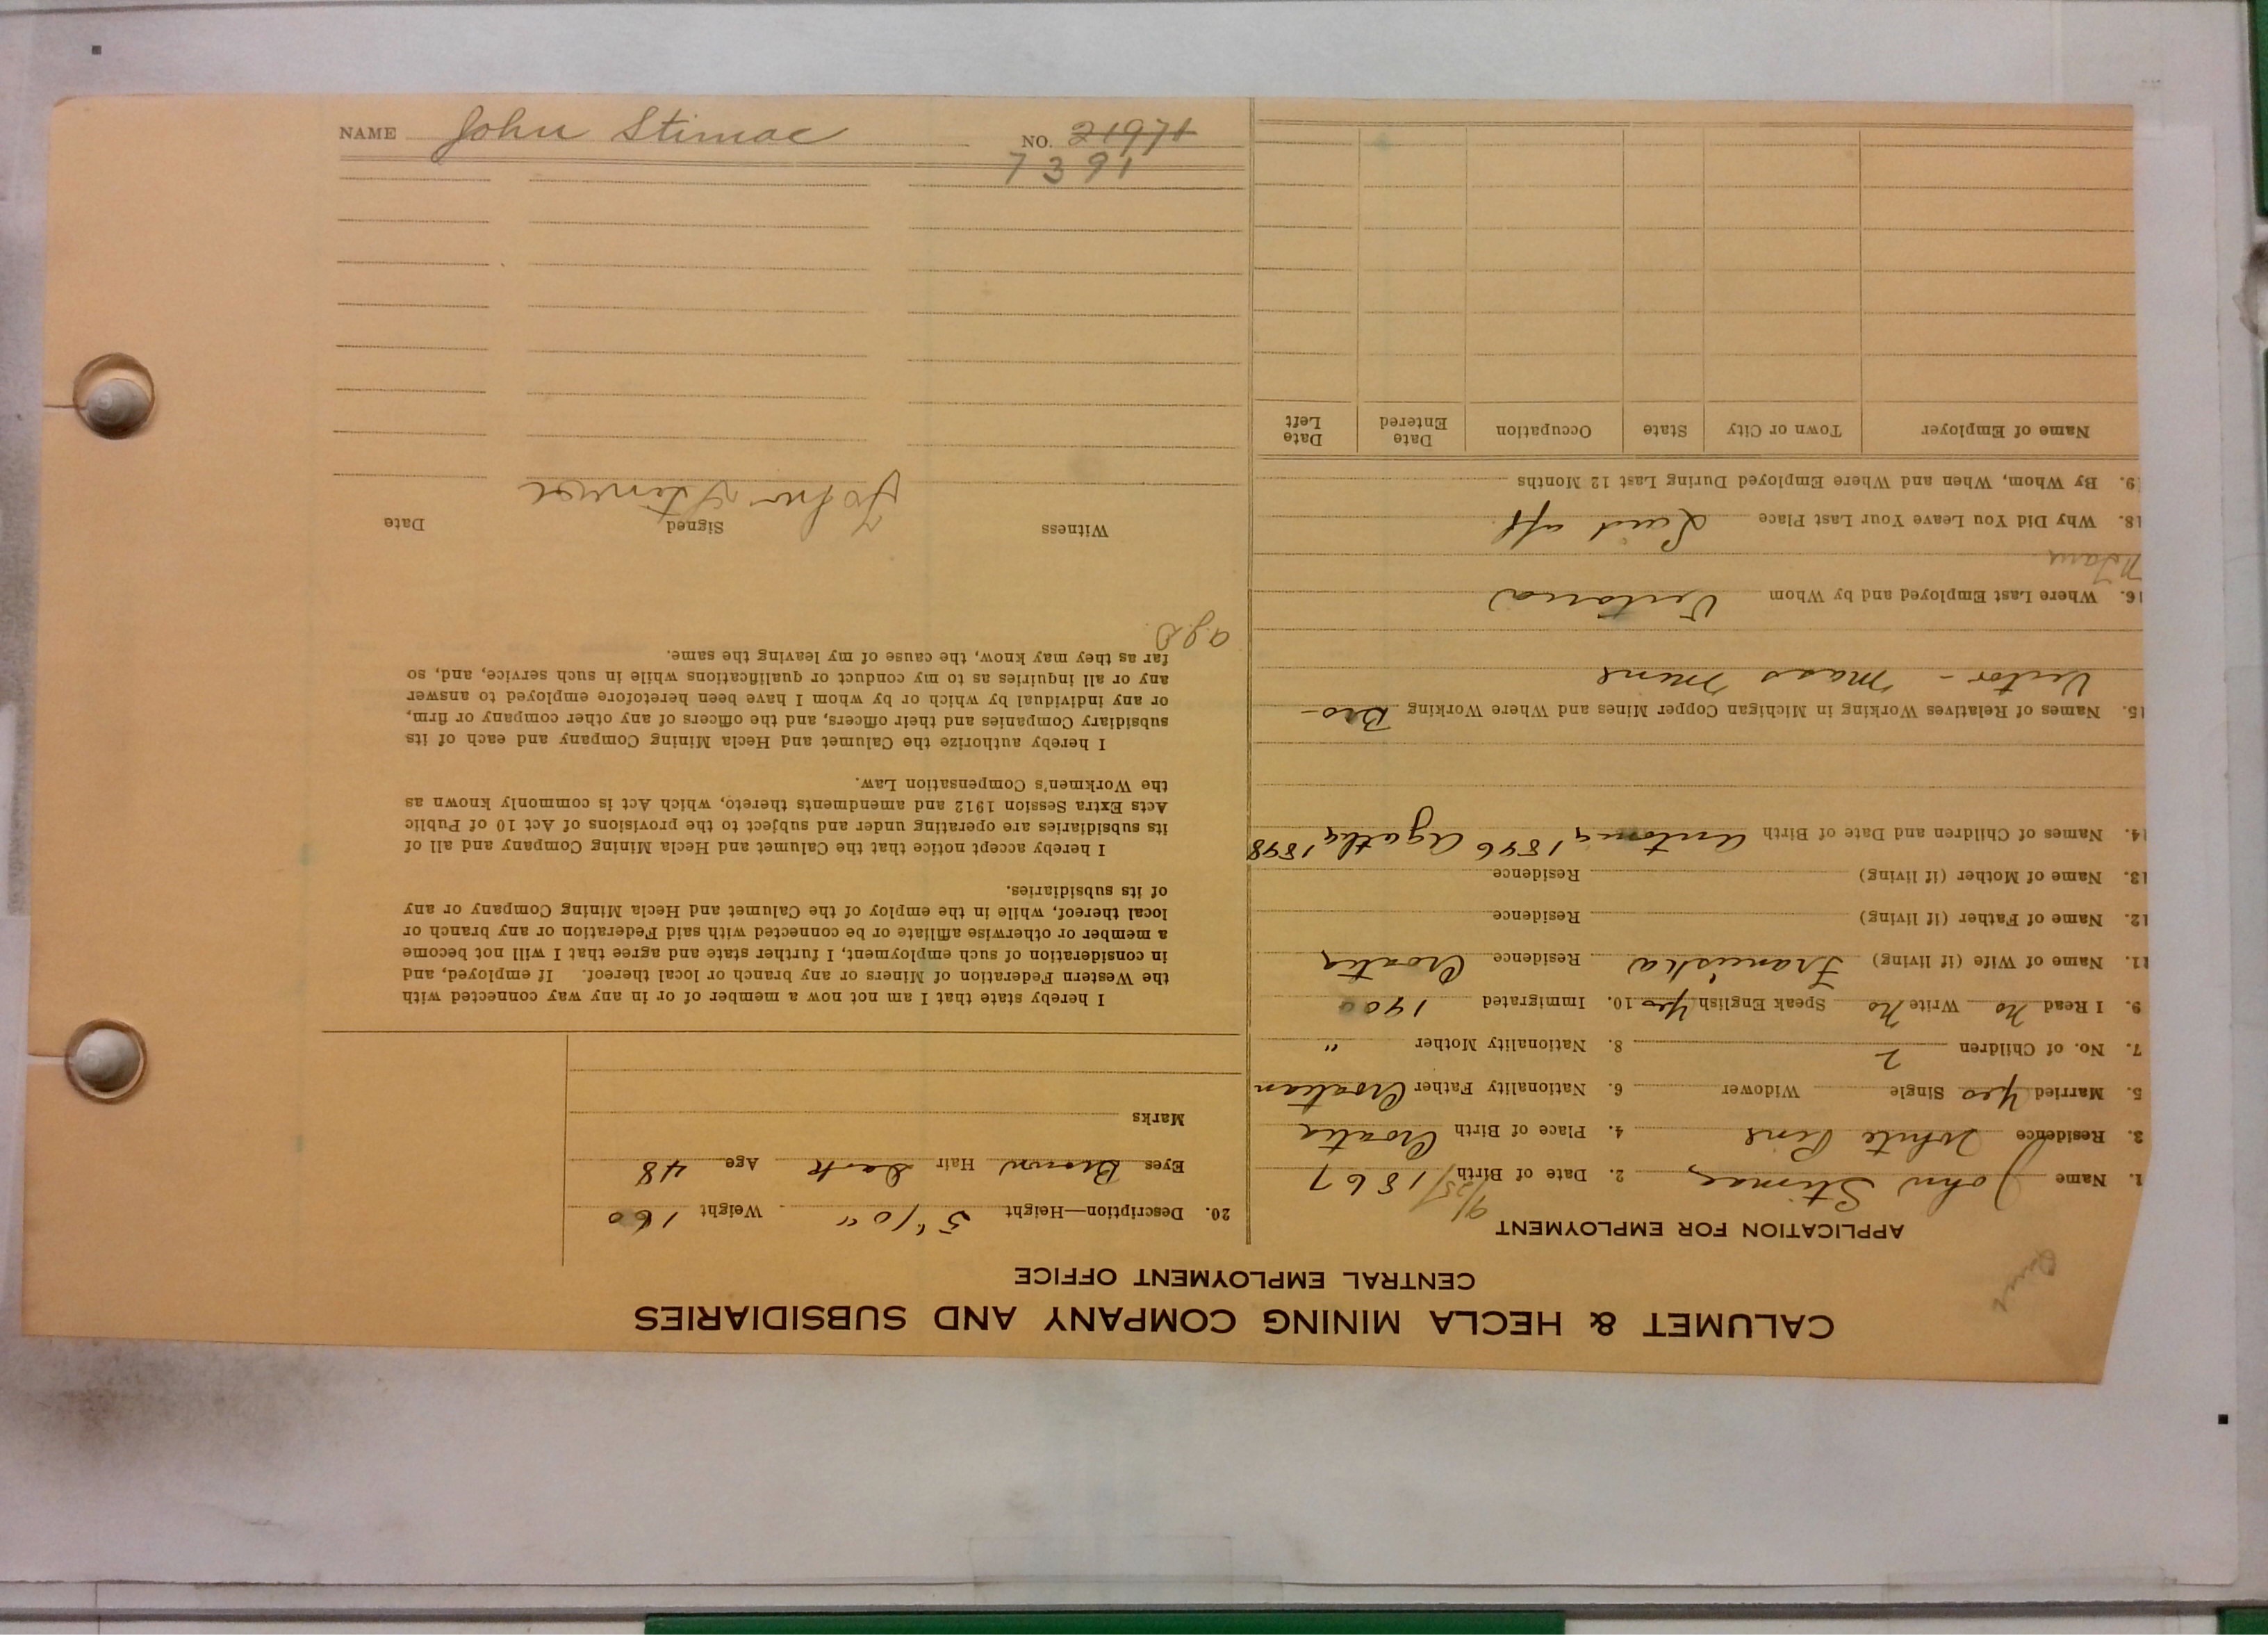 NAME John Stimac NO. 21971
7391
CALUMET & HECLA MINING COMPANY AND SUBSIDIARIES
CENTRAL EMPLOYMENT OFFICE
APPLICATION FOR EMPLOYMENT
1. Name John Stimac 2. Date of Birth 9/25/1867
3. Residence White Pine 4. Place of Birth Croatia
5. Married Yes Single Widower 6. Nationality Father Croatian
7. No. of Children 2 8. Nationality Mother "
9. I Read No Write No Speak English Yes 10. Immigrated 1900
11. Name of Wife (if living) Franciska Residence Croatia
12. Name of Father (if living) Residence
13. Name of Mother (if living) Residence
14. Names of Children and Date of Birth Antonia 1896 Agatha 1898
15. Names of Relatives Working in Michigan Copper Mines and Where Working Bro-
Victor - Mass Mine
16. Where Last Employed and by Whom Victoria
18. Why Did You Leave Your Last Place Laid off
19. By Whom, When and Where Employed During Last 12 Months
Name of Employer Town or City State Occupation Date Entered Date Left
20. Description—Height 5' 10" Weight 160
Eyes Brown Hair Dark Age 48
Marks
I hereby state that I am not now a member of or in any way connected with
the Western Federation of Miners or any branch or local thereof. If employed, and
in consideration of such employment, I further state and agree that I will not become
a member or otherwise affiliate or be connected with said Federation or any branch or
local thereof, while in the employ of the Calumet and Hecla Mining Company or any
of its subsidiaries.
I hereby accept notice that the Calumet and Hecla Mining Company and all of
its subsidiaries are operating under and subject to the provisions of Act 10 of Public
Acts Extra Session 1912 and amendments thereto, which Act is commonly known as
the Workmen's Compensation Law.
I hereby authorize the Calumet and Hecla Mining Company and each of its
subsidiary Companies and their officers, and the officers of any other company or firm,
or any individual by which or by whom I have been heretofore employed to answer
any or all inquiries as to my conduct or qualifications while in such service, and, so
far as they may know, the cause of my leaving the same.
Witness Signed Date
John Stimac